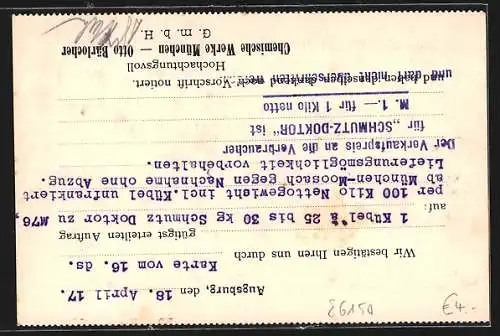 Augsburg, den 18. April 17.
Wir bestätigen Ihren uns durch
Karte vom 16. ds.
gütigst erteilten Auftrag
auf: 1 Kübel à 25 bis 30 kg Schmutz Doktor zu M76.
per 100 Kilo Nettogewicht incl. Kübel unfrankiert
ab München-Moosach gegen Nachnahme ohne Abzug.
Lieferungsmöglichkeit vorbehalten.
Der Verkaufspreis an die Verbraucher
für „SCHMUTZ-DOKTOR" ist
M. 1.— für 1 Kilo netto
und darf nicht überschritten werden.
und haben denselben dankend nach Vorschrift notiert.
Hochachtungsvoll
Chemische Werke München — Otto Bärlocher
G. m. b. H.
€4.-